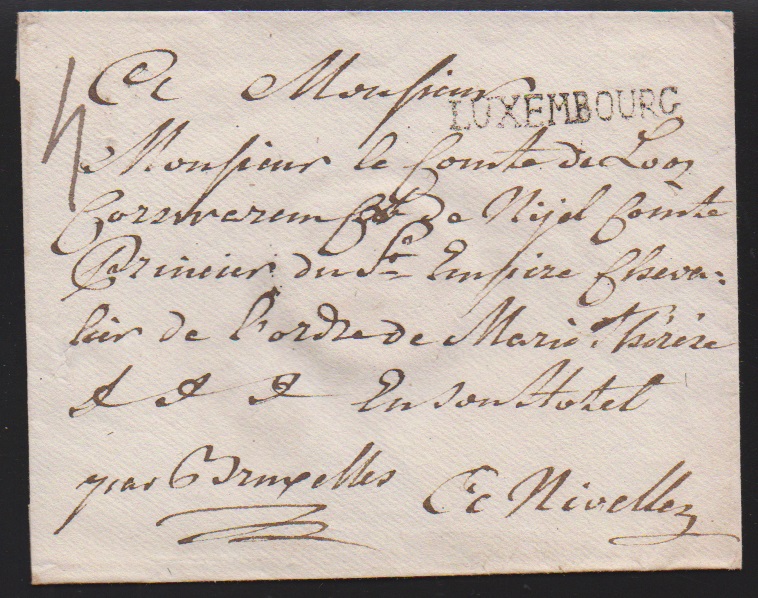 A Monsieur
LUXEMBOURG
4
Monsieur le Comte de Looz
Corswarem de Nijel Comte
Princier du St Empire Cheva-
lier de l'ordre de Marie Therese
& & & En son Hotel
par Bruxelles
A Nivellez